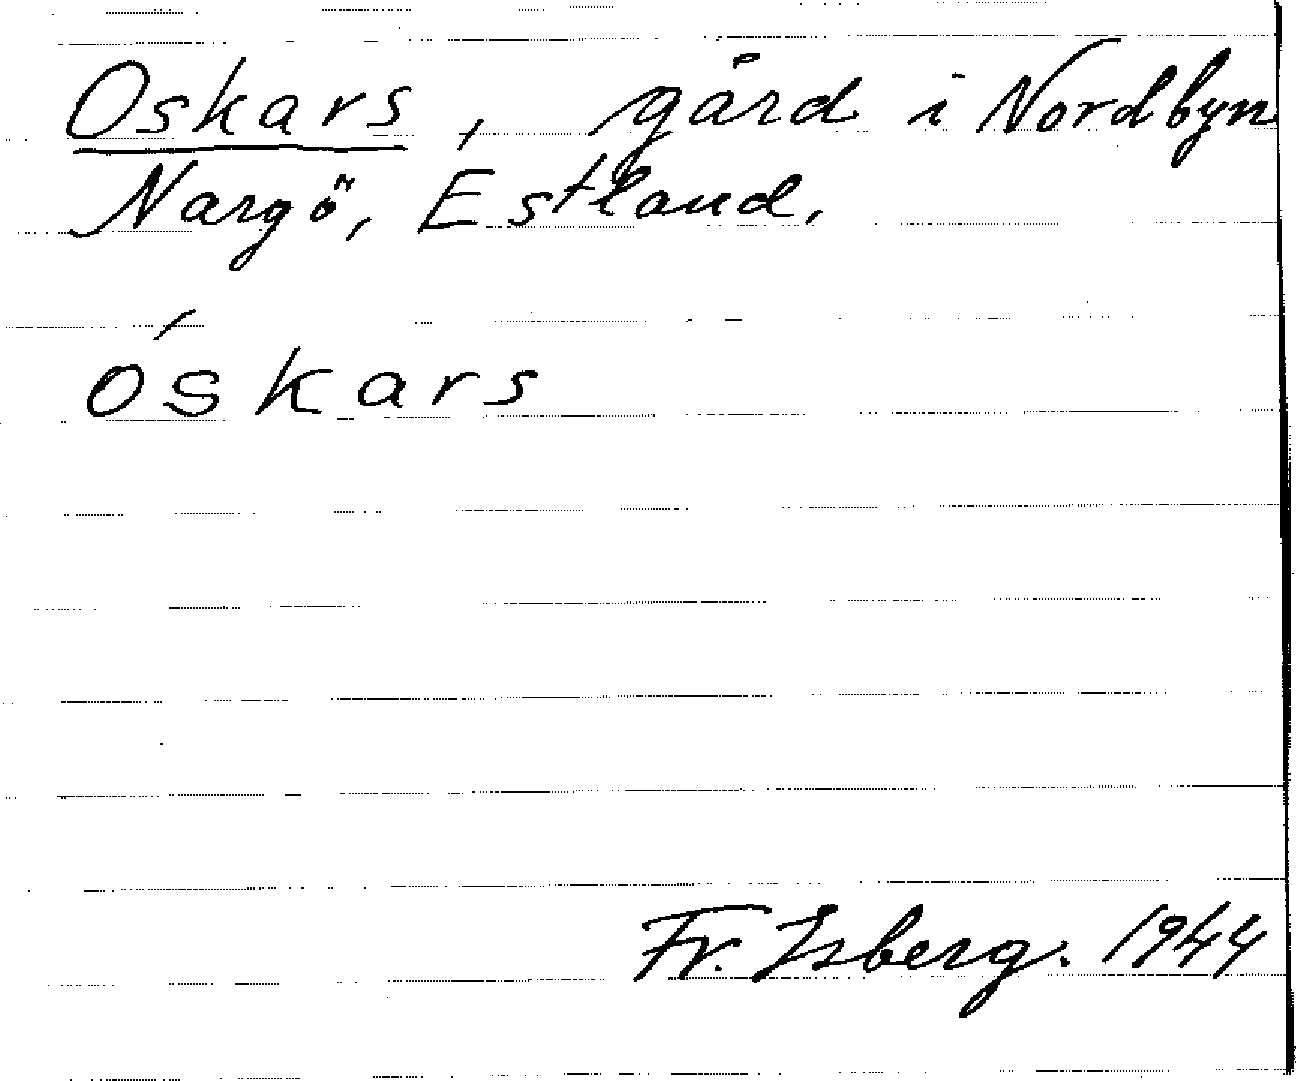 Oskars, gård i Nordbyn
Nargö, Estland.
óskars
Fr. Isberg. 1944